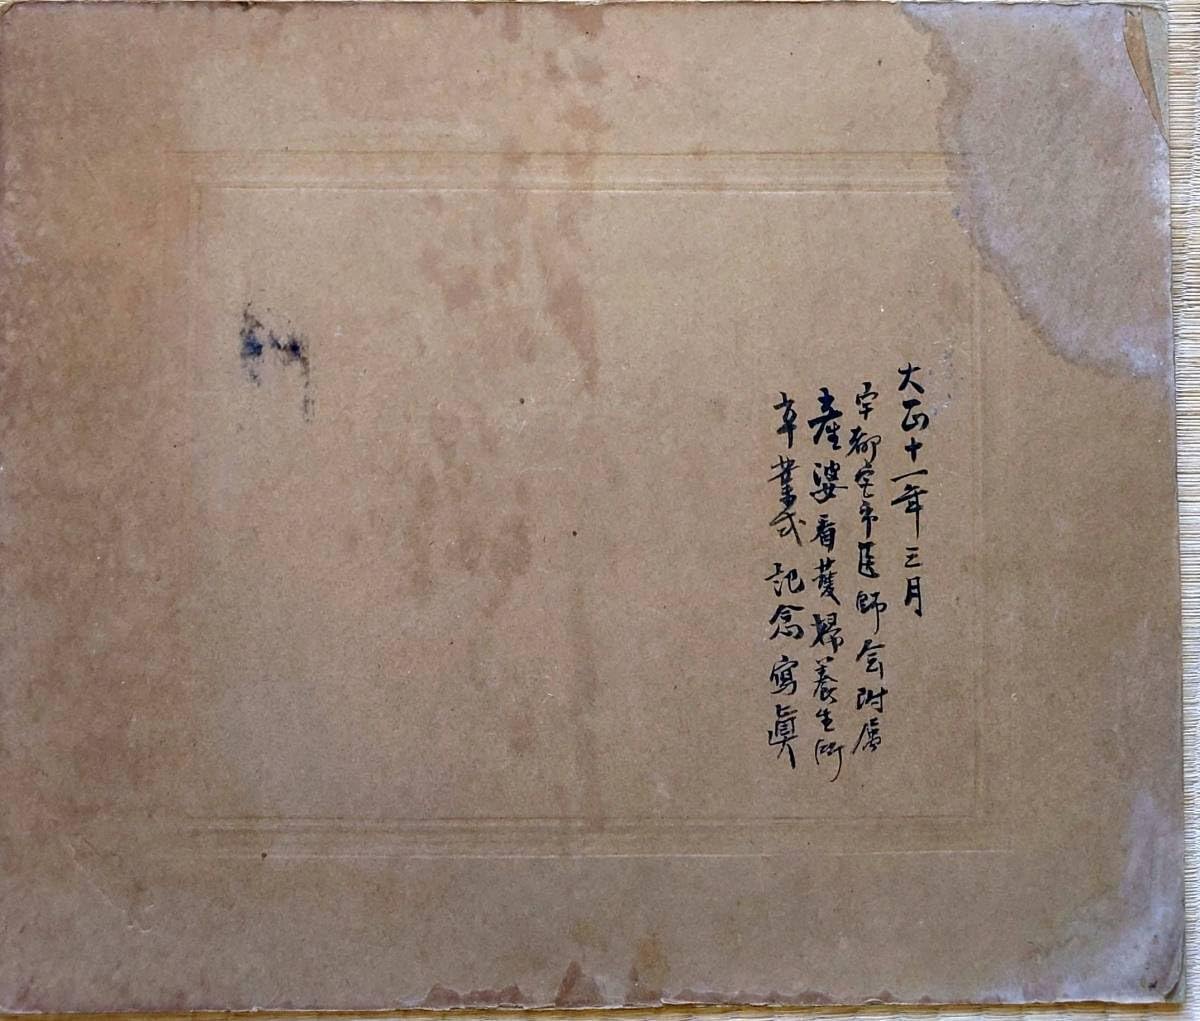 大正十一年三月
宇都宮市医師会附属
産婆看護婦養生所
卒業式記念寫眞